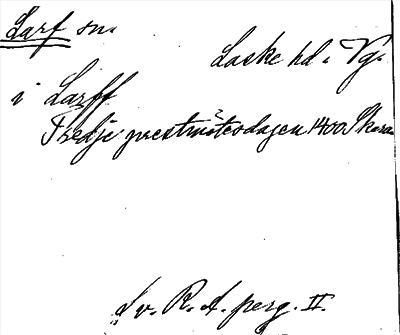 Larf sn.
Laske hd. Vg.
i Larff
Tredje prestmötesdagen 1400 Skara
Sv. R. A. perg. II.